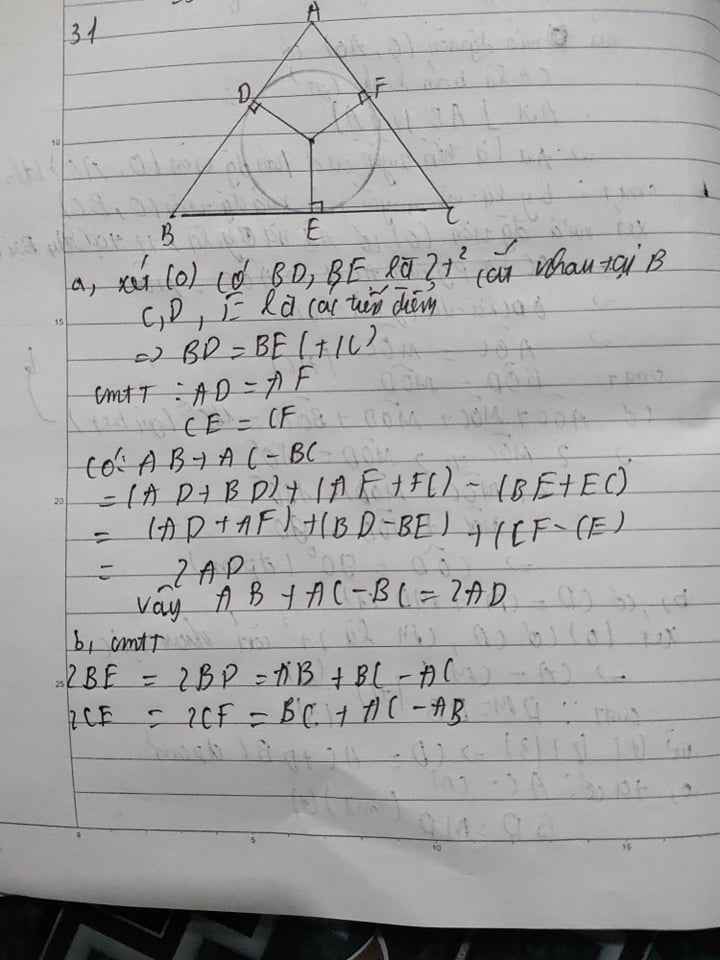 31
A
D
F
B
E
C
a, xét (O) có BD, BE là 2 t² cắt nhau tại B
C, D, E là các tiếp điểm
=> BD = BE (t/c)
cmtT : AD = AF
CE = CF
Có: AB + AC - BC
= (AD + BD) + (AF + FC) - (BE + EC)
= (AD + AF) + (BD - BE) + (CF - CE)
= 2AD
Vậy AB + AC - BC = 2AD
b, cmtT
2BE = 2BD = AB + BC - AC
2CE = 2CF = BC + AC - AB
5
10
15
10
15
20
25